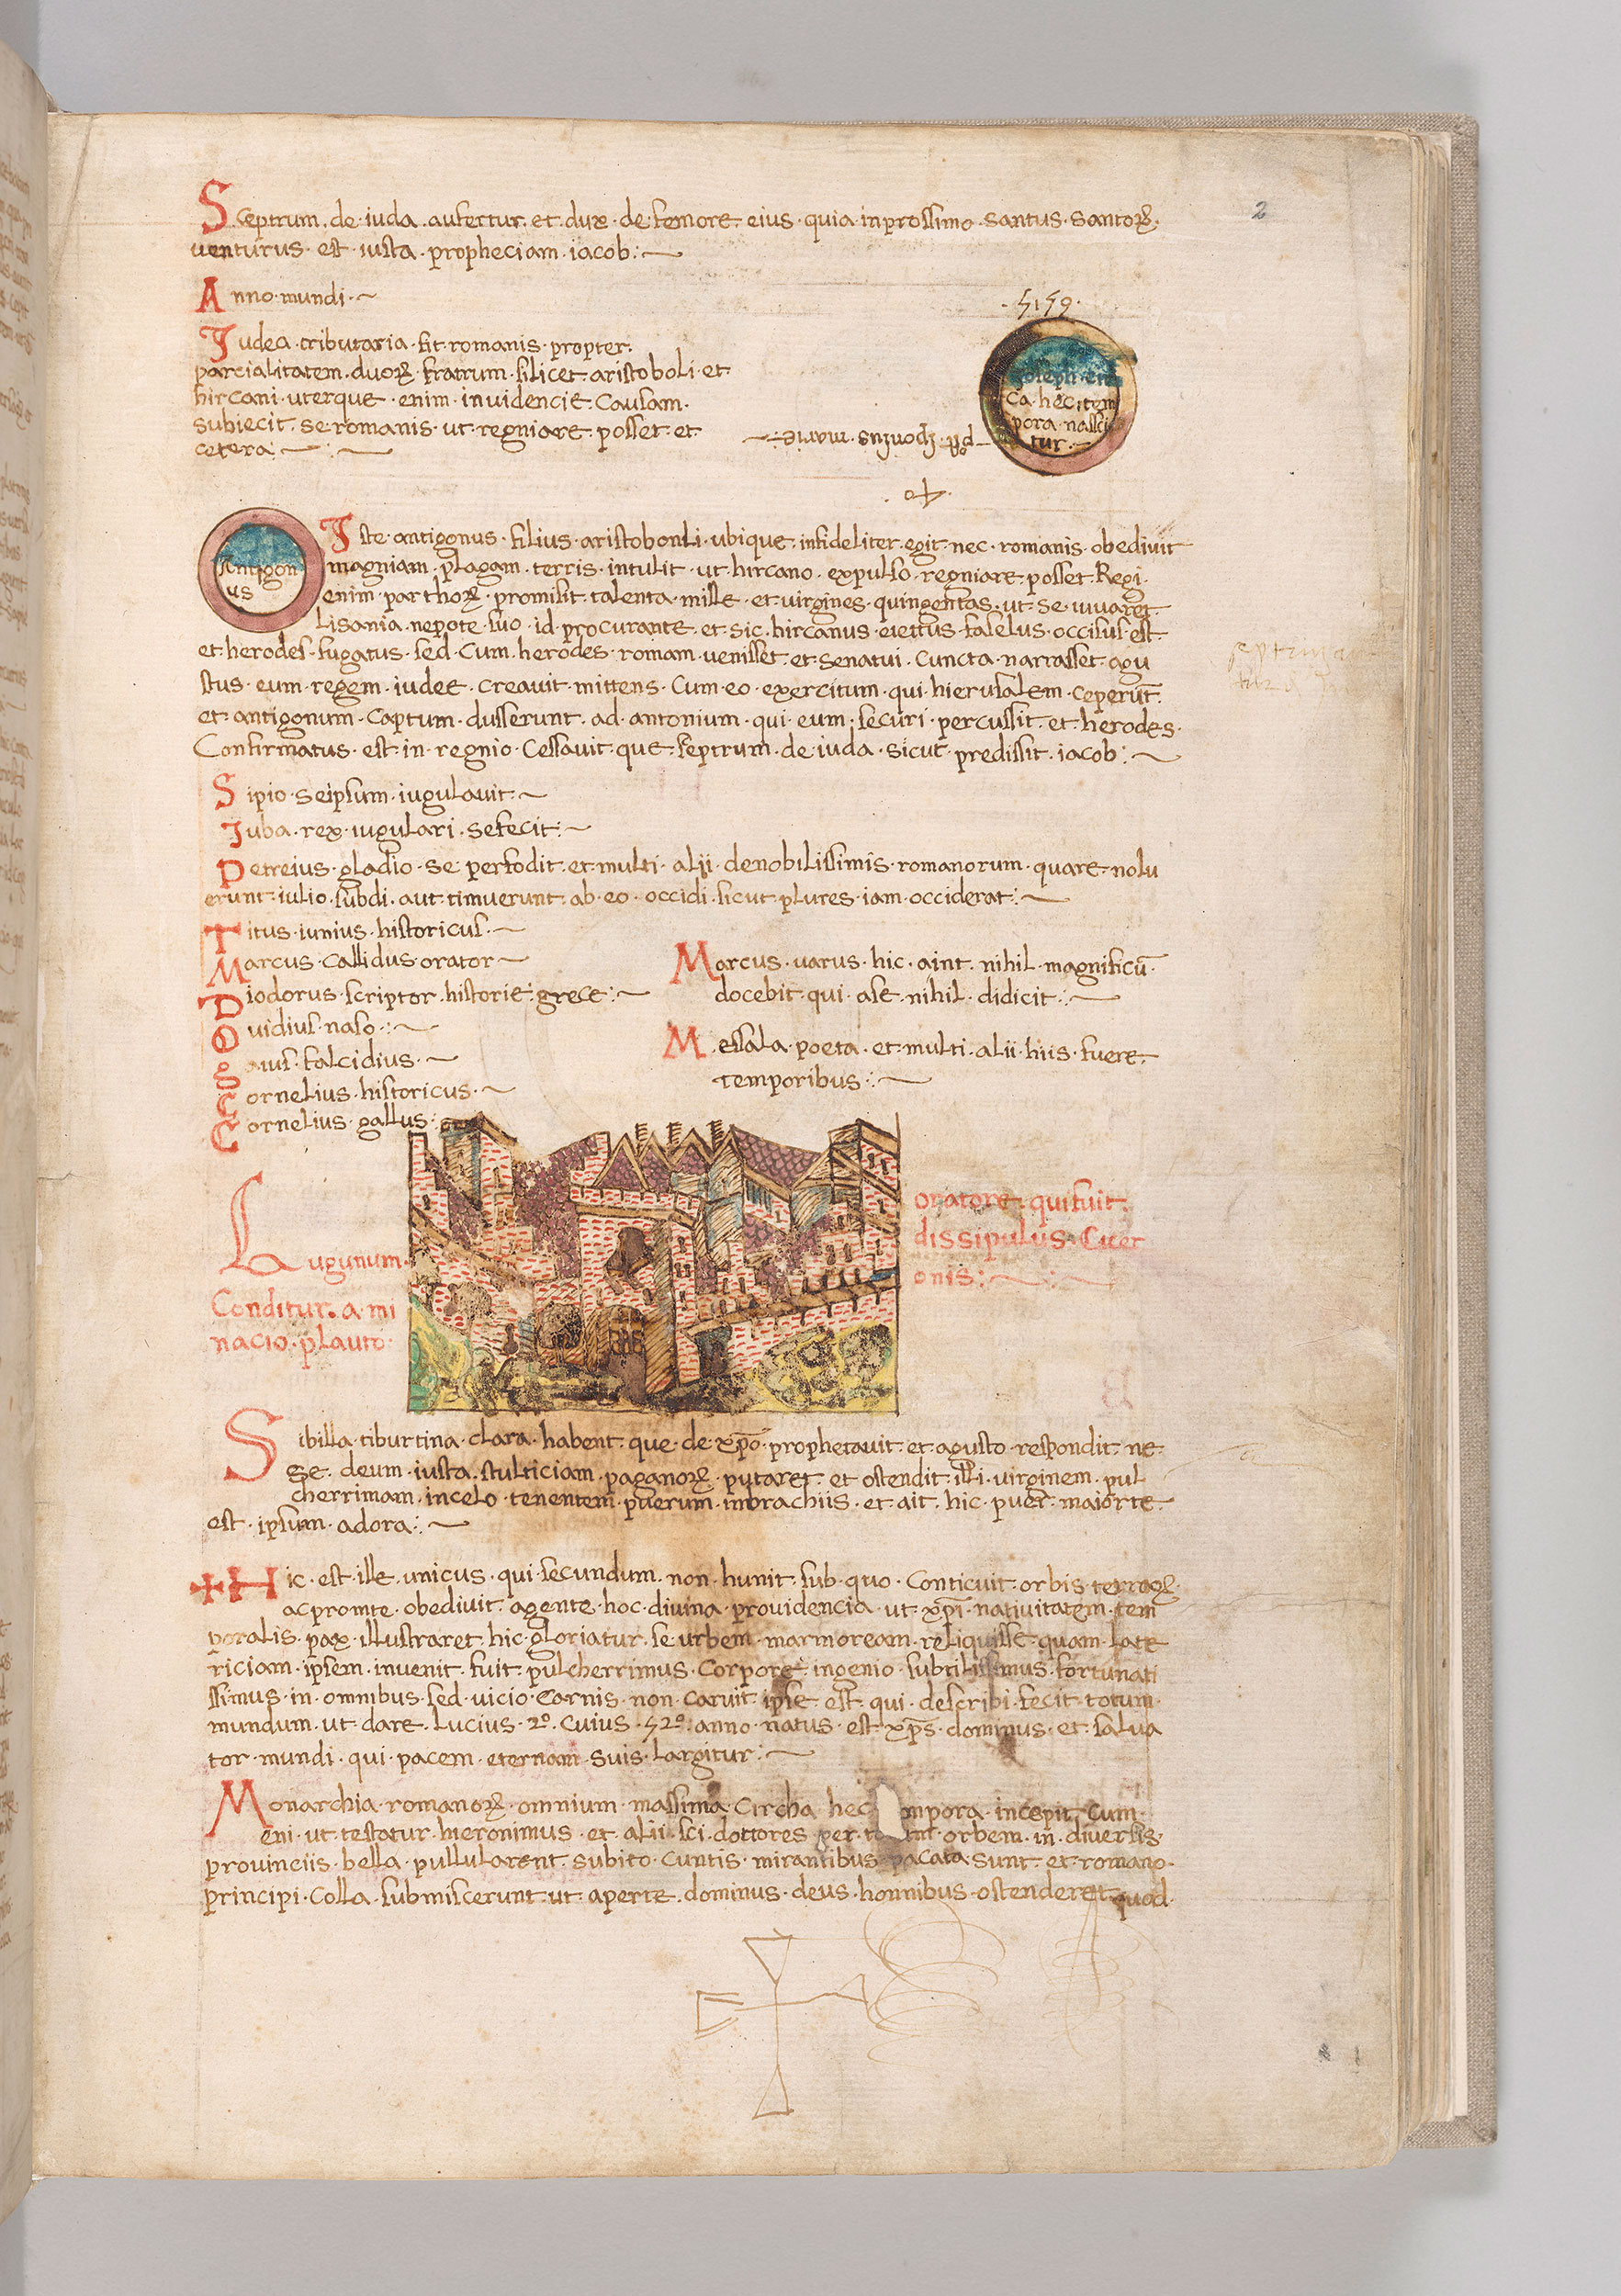 Sceptrum. de. iuda. aufertur. et. dux. de. femore. eius. quia. in prossimo. santus. santoꝝ.
venturus. est. iusta. propheciam. iacob:~
2
Anno. mundi.~
.5159.
Iudea. tributaria. fit. romanis. propter.
parcialitatem. duoꝝ. fratrum. silicet. aristoboli. et
hircani. uterque. enim. invidencie. causam.
subiecit. se. romanis. ut. regniare. posset. et
cetera:~
Ioseph. circa. hec. tem
pora. nasci
tur.~
sponsus. marie:~
Antigon
us
Iste. antigonus. filius. aristobonli. ubique. infideliter. egit. nec. romanis. obediuit
magniam. plagam. terris. intulit. ut. hircano. expulso. regniare. posset. Regi.
enim. parthoꝝ. promisit. talenta. mille. et. virgines. quingentas. ut. se. iuuaret.
Lisania. nepote. suo. id. procurante. et. sic. hircanus. eiettus. faselus. occisus. est
et. herodes. fugatus. sed. cum. herodes. romam. venisset. et. senatui. cuncta. narrasset. agu
stus. eum. regem. iudee. creauit. mittens. cum. eo. exercitum. qui. hierusalem. ceperūt.
et. antigonum. captum. dusserunt. ad. antonium. qui. eum. securi. percussit. et. herodes.
Confirmatus. est. in. regnio. Cessauit. que. septrum. de. iuda. sicut. predissit. iacob:~
Sipio. seipsum. iugulauit.~
Iuba. rex. iugulari. se fecit:~
Petreius. gladio. se. perfodit. et. multi. alii. de nobilissimis. romanorum. quare. nolu
erunt. iulio. subdi. aut. timuerunt. ab. eo. occidi. sicut. plures. iam. occiderat:~
Titus. iunius. historicus.~
Marcus. callidus. orator~
Diodorus. scriptor. historie. grece:~
Ouidius. naso.:~
gaius. falcidius.~
Cornelius. historicus.~
Cornelius. gallus:
Marcus. uarus. hic. aint. nihil. magnificū.
docebit. qui. a se. nihil. didicit:~
Messala. poeta. et. multi. alii. hiis. fuere.
temporibus:~
Lugunum.
Conditur. a. mi
nacio. plauto.
oratore. qui fuit.
dissipulus. Cicer
onis:~
Sibilla. tiburtina. clara. habent. que. de. xp̄o. prophetauit. et. agusto. respondit. ne.
se. deum. iusta. stulticiam. paganoꝝ. putaret. et ostendit. illi. virginem. pul
cherrimam. in celo. tenentem. puerum. in brachiis. et. ait. hic. puer. maior te
est. ipsum. adora:~
Hic. est. ille. unicus. qui. secundum. non. hunit. sub. quo. Conticuit. orbis. terraꝝ.
ac promte. obediuit. agente. hoc. diuina. prouidencia. ut. xp̄i. natiuitatem. tem
poralis. pax. illustraret. hic. gloriatur. se. urbem. marmoream. reliquisse. quam. late
riciam. ipsem. inuenit. fuit. pulcherrimus. corpore. ingenio. subtilissimus. fortunati
ssimus. in. omnibus. sed. uicio. carnis. non. caruit. ipse. est. qui. describi. fecit. totum.
mundum. ut. dare. Lucius. 2º. cuius. 52º. anno. natus. est. xp̄s. dominus. et. salua
tor. mundi. qui. pacem. eternam. suis. largitur:~
Monarchia. romanoꝝ. omnium. massima. circha. hec mpora. incepit. cum.
eni. ut. testatur. hieronimus. et. alii. sci. dottores. per. orbem. in. diuersis.
prouinciis. bella. pullularent. subito. cuntis. mirantibus. pacata. sunt. et. romano.
principi. colla. submiscerunt. ut. aperte. dominus. deus. homnibus. ostenderet. quod.